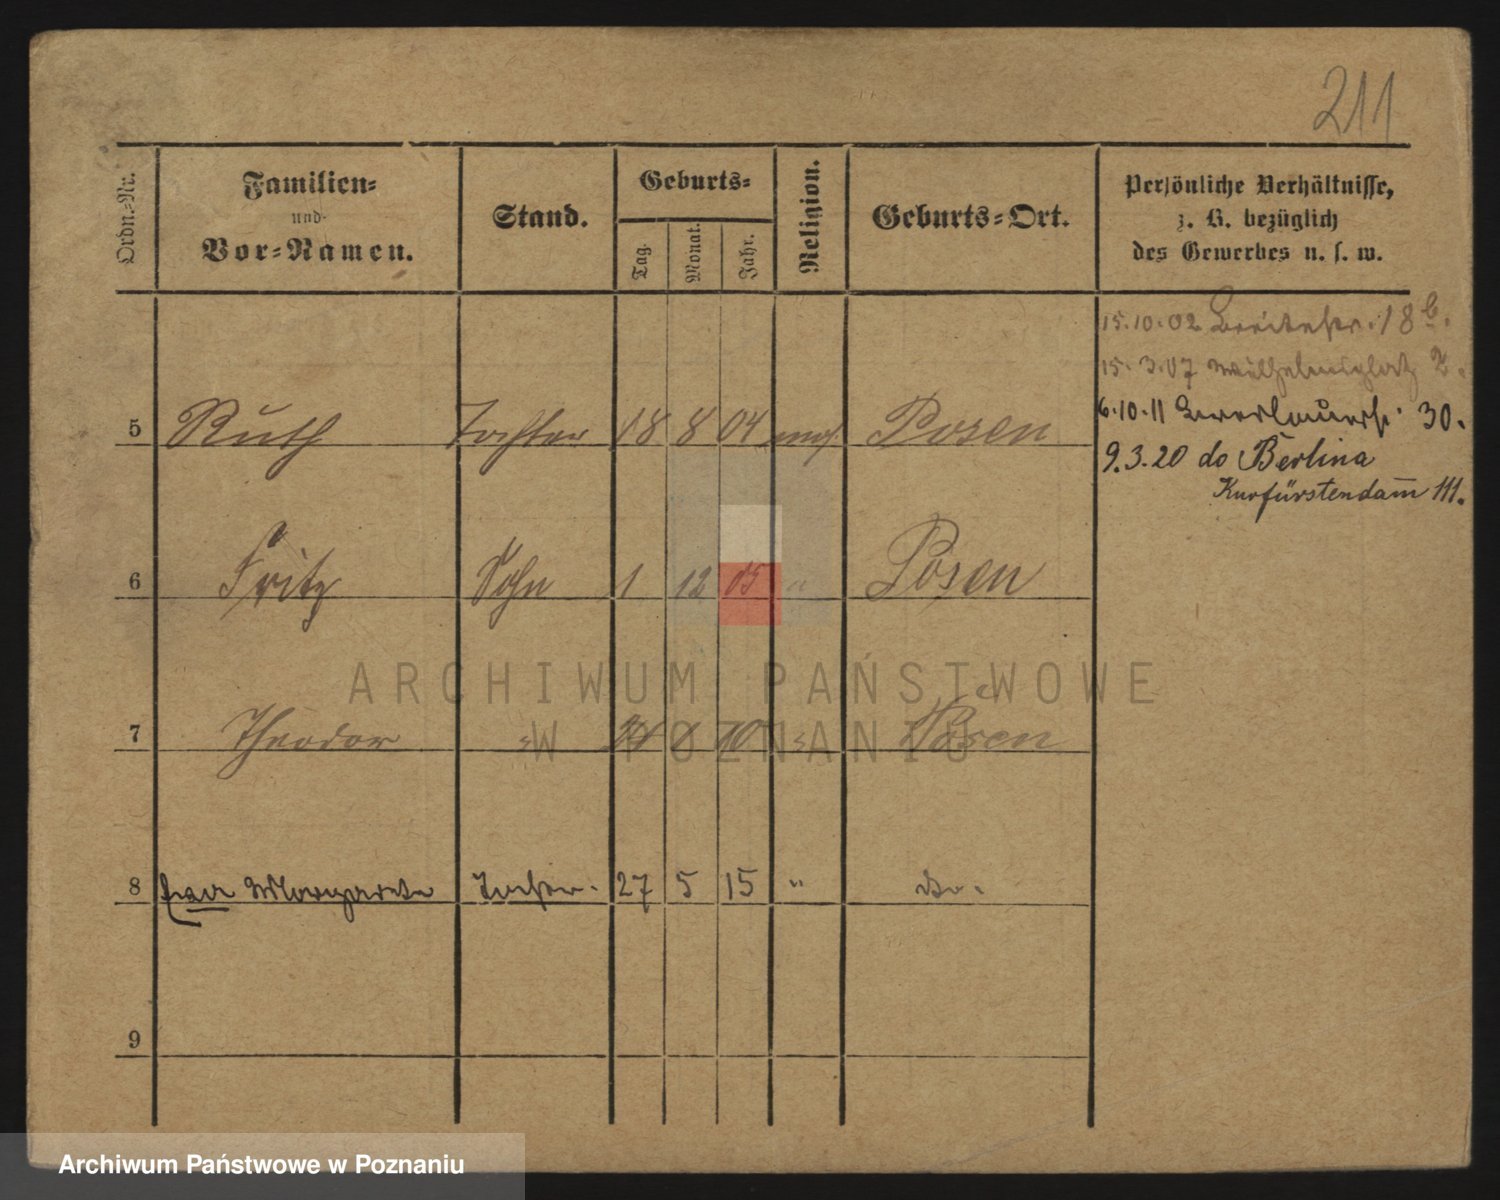 211
Ordn.-Nr. Familien- und Vor-Namen. Stand. Geburts- Tag. Monat. Jahr. Religion. Geburts-Ort. Persönliche Verhältnisse, z. B. bezüglich des Gewerbes u. s. w.
15.10.02 Breitestr. 18 b.
15.3.07 Wilhelmsplatz 2.
5 Ruth Tochter 18 8 04 mos. Posen
6.10.11 30.
9.3.20 do Berlina
Kurfürstendam̅ 111.
6 Fritz Sohn 1 12 05 " Posen
7 Theodor " 10 " Posen
8 Margarete Tochter. 27 5 15 " do.
9
ARCHIWUM PAŃSTWOWE
W POZNANIU
Archiwum Państwowe w Poznaniu